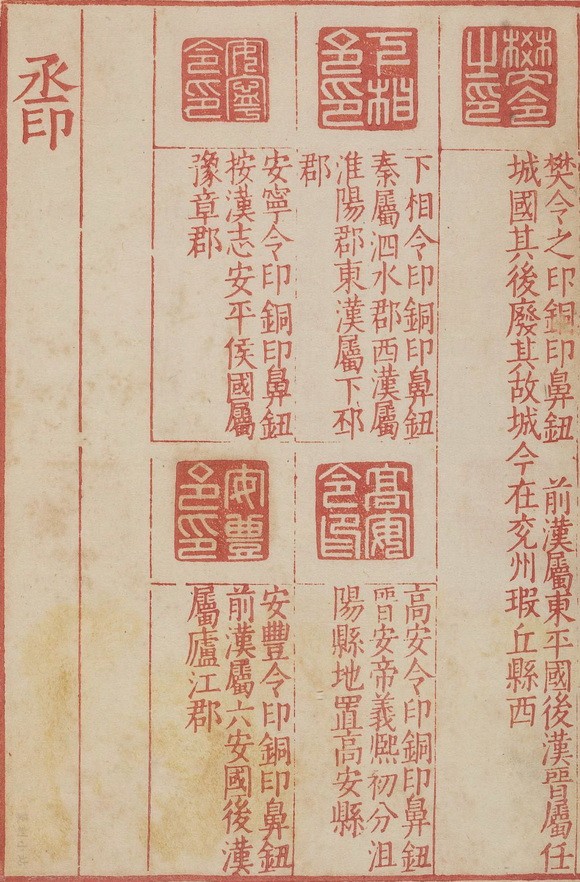 樊令之印
樊令之印銅印鼻鈕　前漢屬東平國後漢晉屬任
城國其後廢其故城今在兗州瑕丘縣西
下相令印
下相令印銅印鼻鈕
秦屬泗水郡西漢屬
淮陽郡東漢屬下邳
郡
高安令印
高安令印銅印鼻鈕
晉安帝義熈初分沮
陽縣地置高安縣
安寧令印
安寧令印銅印鼻鈕
按漢志安平侯國屬
豫章郡
安豐令印
安豐令印銅印鼻鈕
前漢屬六安國後漢
屬廬江郡
丞印